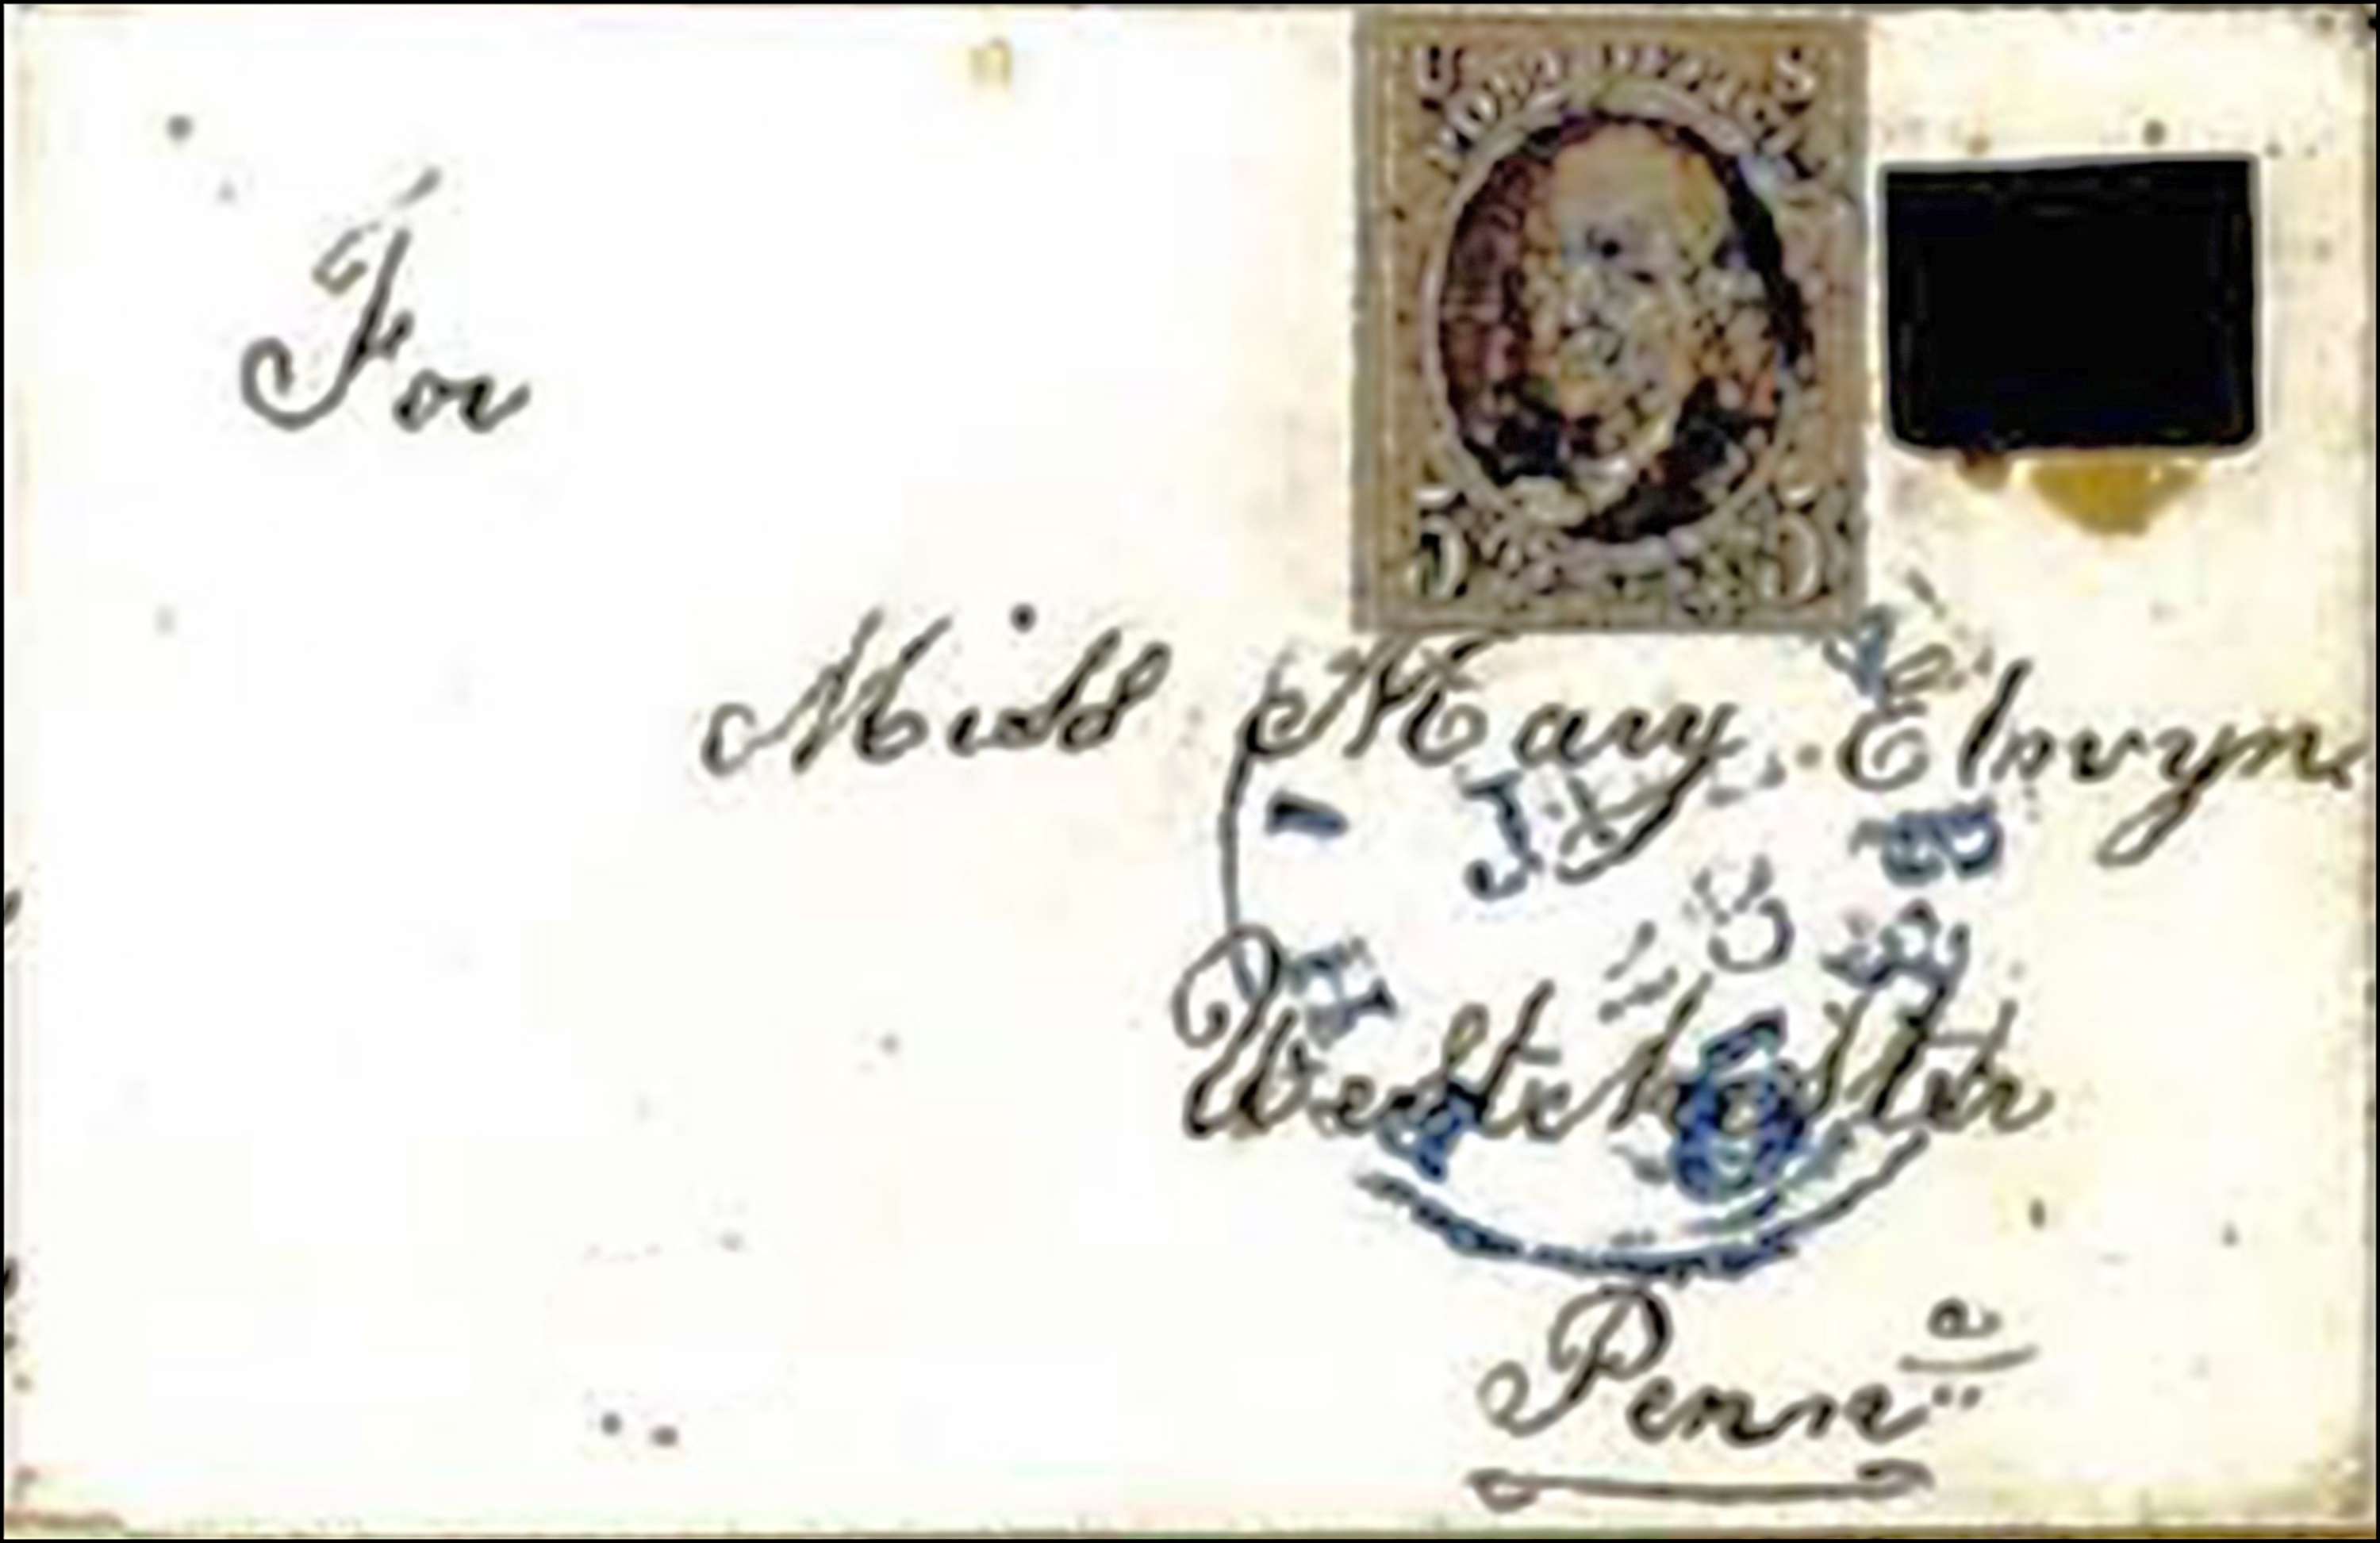 For
U S
POST OFFICE
5 5
Miss Mary Elwyn
Westchester
Penn a